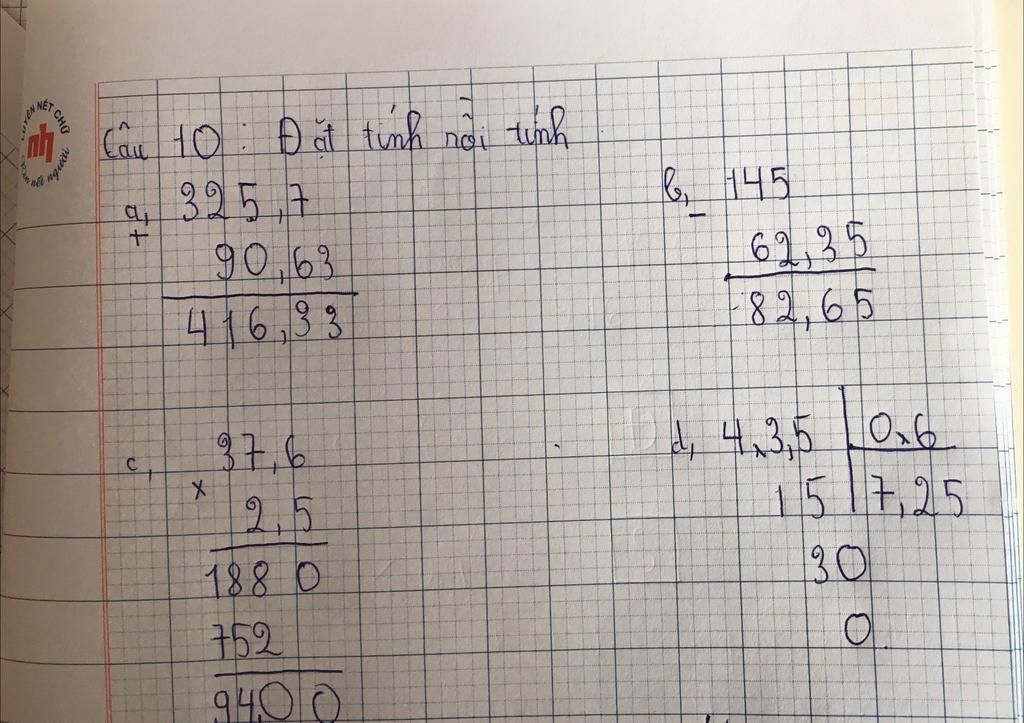 LUYỆN NÉT CHỮ
nh
Rèn nết người
Câu 10 : Đặt tính rồi tính
a, 325,7
+
90,63
416,33
b, 145
-
62,35
82,65
c, 37,6
x
2,5
188 0
752
940 0
d, 4,3,5 0,6
15 7,25
30
0